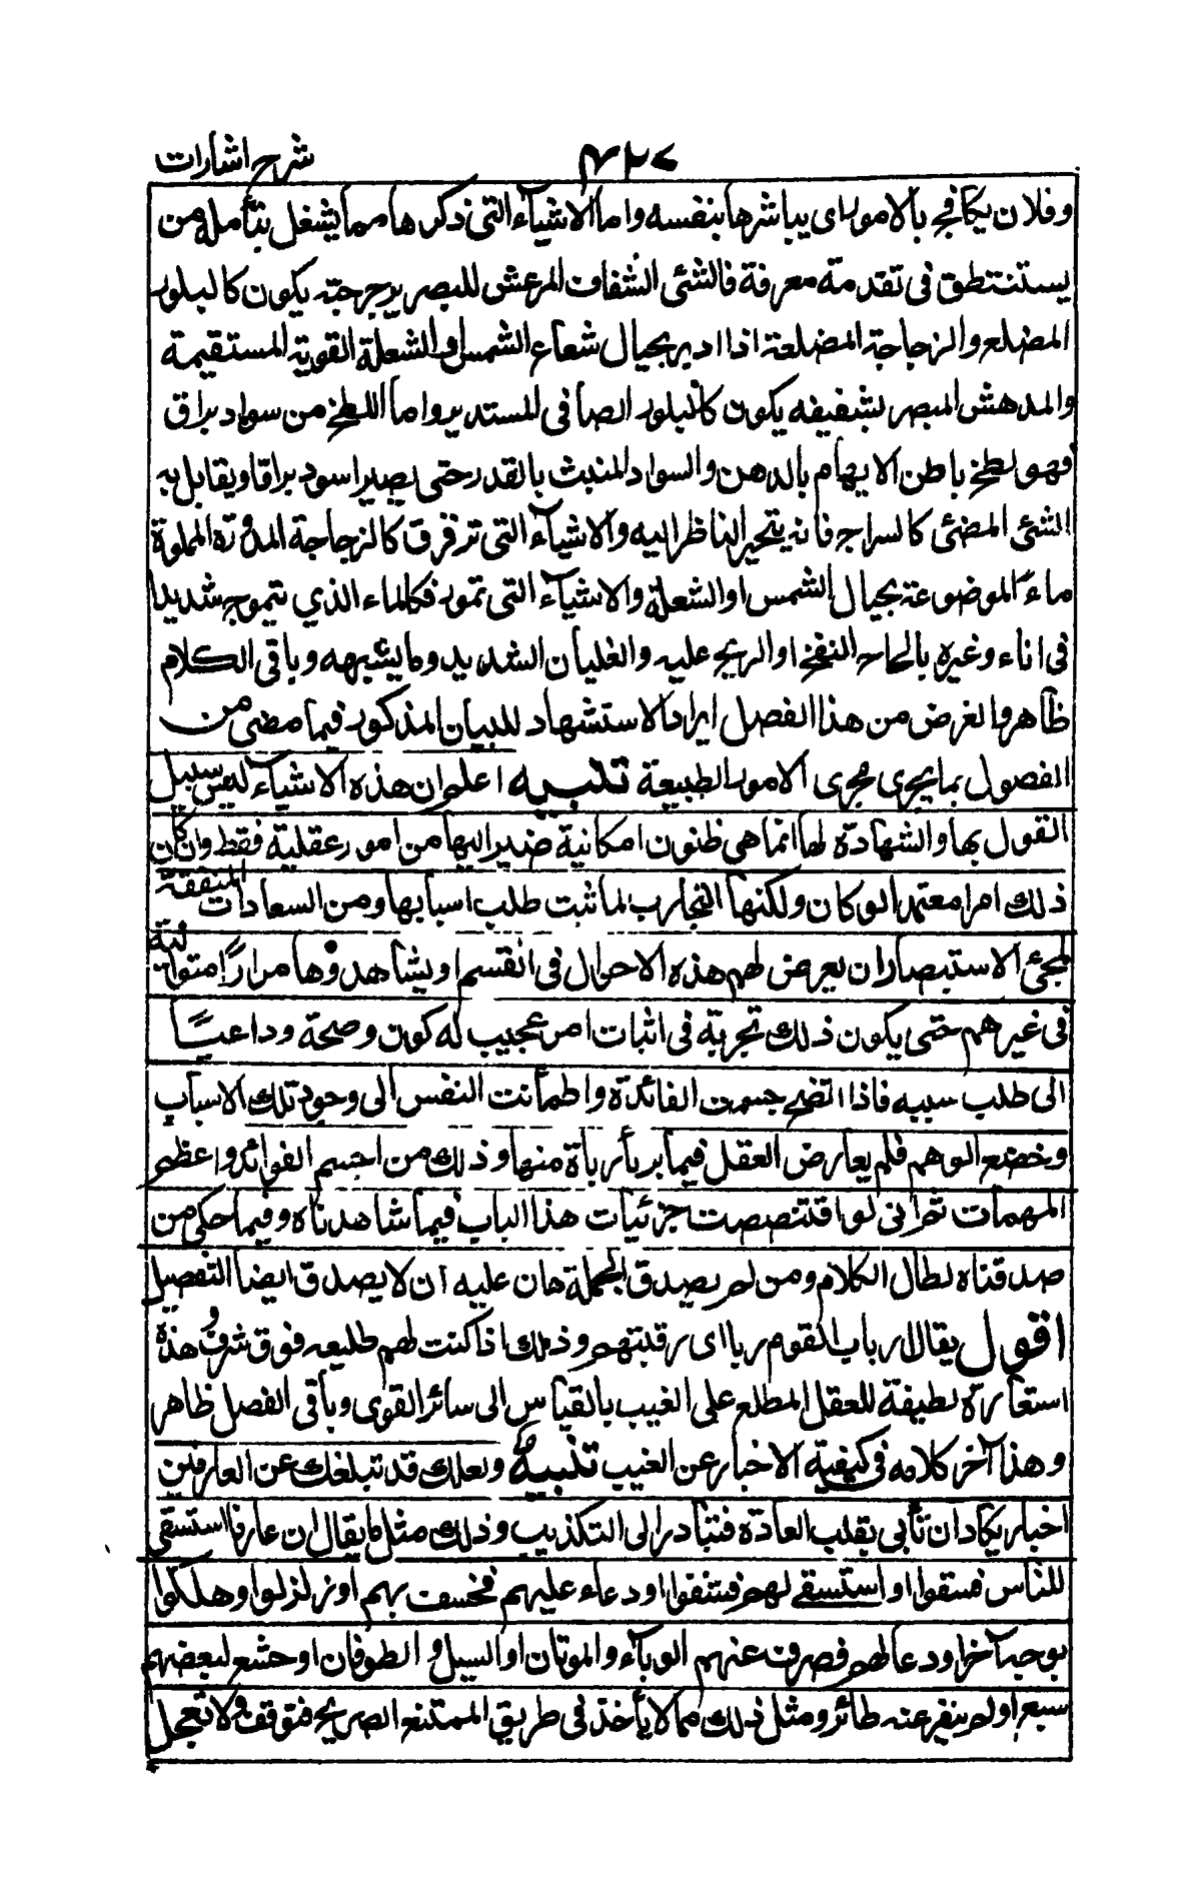 شرح اشارات
وفلان يكافح بالامور اى يباشرها بنفسه واما الاشياء التى ذكرها مما يشغل بتأمله من
يستنطق فى تقدمة معرفة فالشئ الشفاف المرعش للبصر برجرجته يكون كالبلور
المضلع والزجاجة المضلعة اذا ادير بحيال شعاع الشمس او الشعلة القوية المستقيمة
والمدهش المبصر بشفيفه يكون كالبلور الصافى المستدير واما اللطخ من سواد براق
فهو لطخ باطن الابهام بالدهن والسواد المنبث بالقدر حتى يصير اسود براقا ويقابل به
الشئ المضئ كالسراج فانه يتحير الناظر اليه والاشياء التى تترقرق كالزجاجة المدورة المملوة
ماءً الموضوعة بحيال الشمس او الشعلة والاشياء التى تمور فكالماء الذي يتموج شديدا
فى اناء وغيره بالحاح النفخ او الريح عليه والغليان الشديد وما يشبهه وباقى الكلام
ظاهر والغرض من هذا الفصل ايراد الاستشهاد للبيان المذكور فيما مضى من
الفصول بما يجرى مجرى الامور الطبيعة تنبيه اعلم ان هذه الاشياء ليس سبيل
القول بها والشهادة لها انما هى ظنون امكانية صير اليها من امور عقلية فقط وان كان
ذلك امرا معتمدا لو كان ولكنها التجارب لما ثبت طلب اسبابها ومن السعادات المتفقة
لمحبى الاستبصار ان يعرض لهم هذه الاحوال فى انفسهم او يشاهدوها مرارًا متوالية
فى غيرهم حتى يكون ذلك تجربة فى اثبات امر عجيب له كون وصحة وداعيًا
الى طلب سببه فاذا اتضح جسمت الفائدة واطمأنت النفس الى وجود تلك الاسباب
وخضع الوهم فلم يعارض العقل فيما يربأ رباة منها وذلك من اجسم الفوائد واعظم
المهمات ثم انى لو اقتصصت جزئيات هذا الباب فيما شاهدناه وفيما حكى من
صدقناه لطال الكلام ومن لم يصدق الجملة هان عليه ان لا يصدق ايضا التفصيل
اقول يقال ارباب القوم ربا اى رقبتهم وذلك اذا كنت لهم طليعه فوق شرف وهذه
استعارة لطيفة للعقل المطلع على الغيب بالقياس الى سائر القوى وباقى الفصل ظاهر
وهذا آخر كلامه فى كيفية الاخبار عن الغيب تنبيه ولعلك قد تبلغك عن العارفين
اخبار يكاد ان تأبى بقلب العادة فتبادر الى التكذيب وذلك مثل ما يقال ان عارفا استسقى
للناس فسقوا او استسقى لهم فشفوا او دعاء عليهم فخسف بهم او زلزلوا وهلكوا
بوجه آخر او دعا لهم فصرف عنهم الوباء والموتان او السيل و الطوفان او خشع لبعضهم
سبع او لم ينفر عنه طائر ومثل ذلك مما لا يأخذ فى طريق الممتنع الصريح فتوقف ولا تعجل